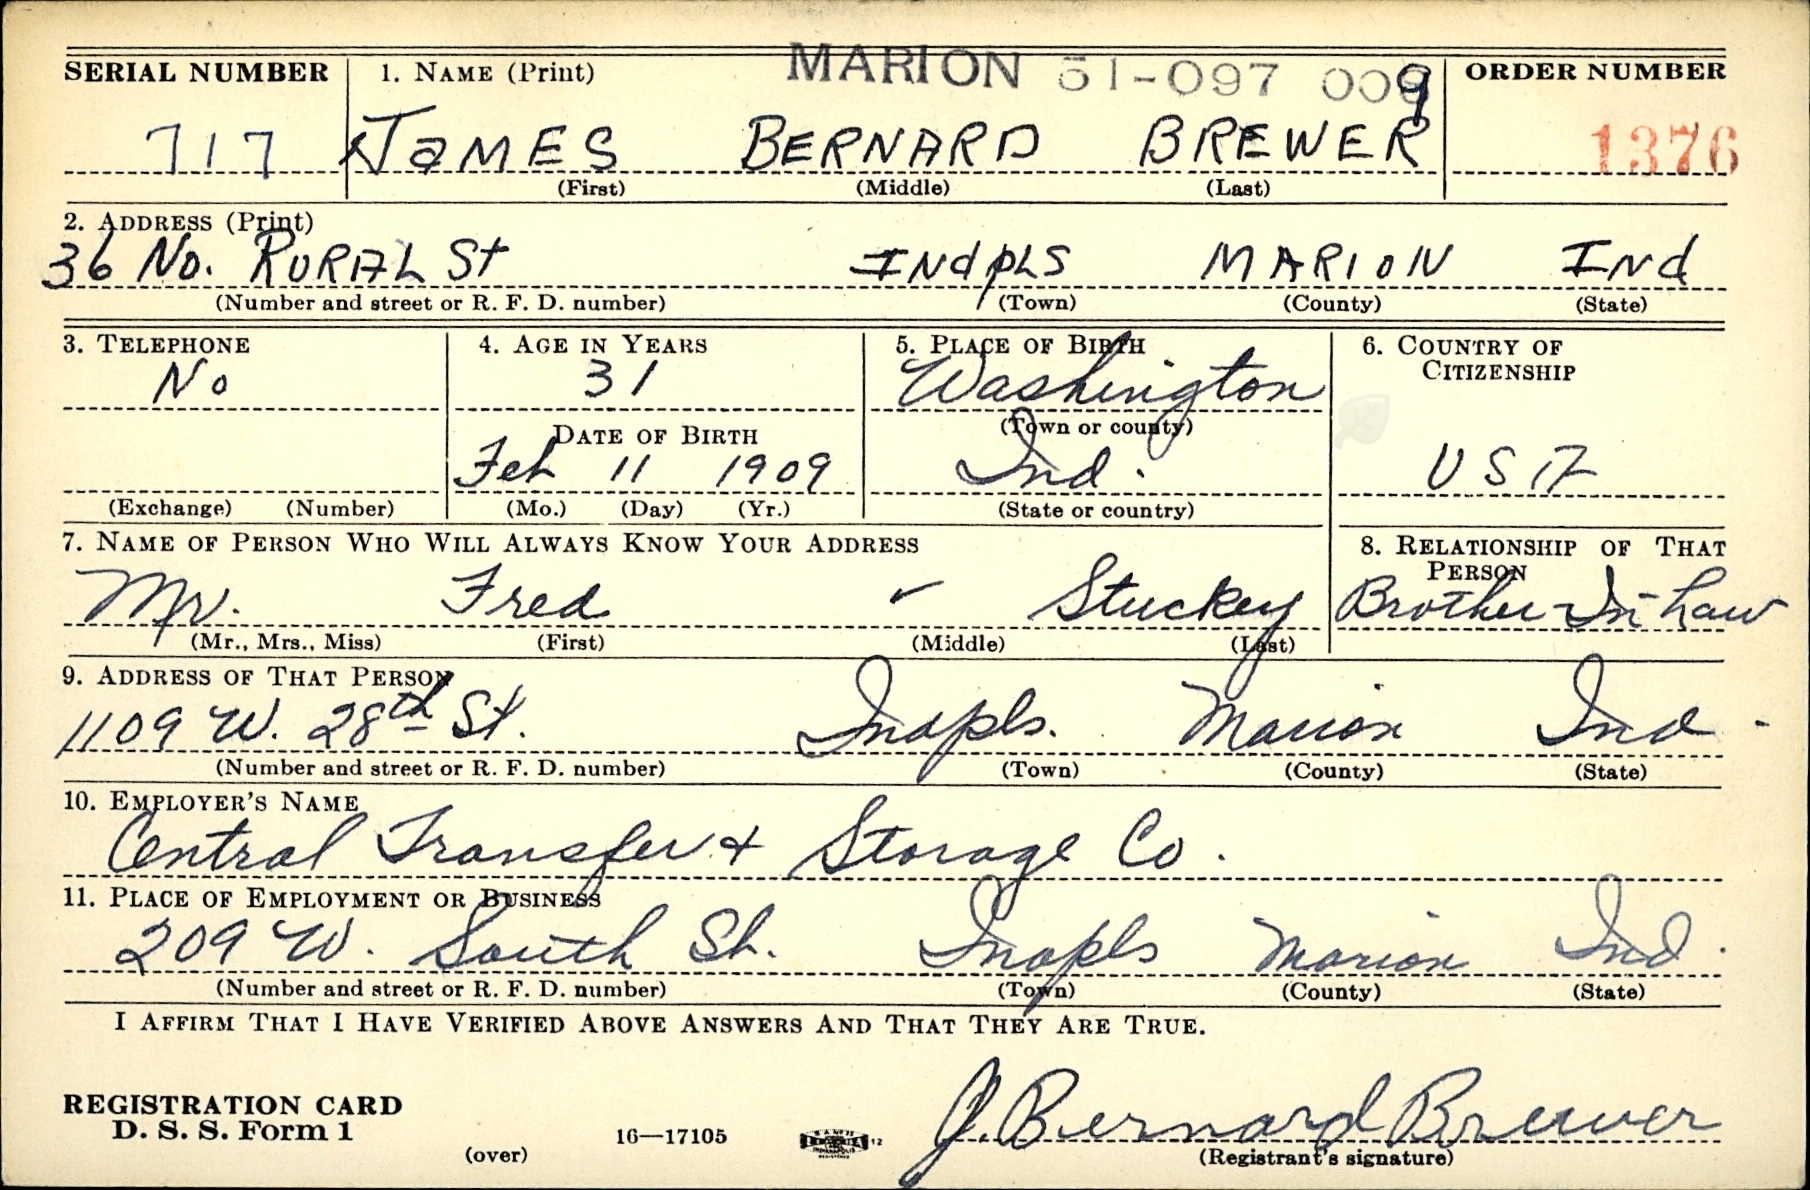 MARION 51-097 009
SERIAL NUMBER 1. NAME (Print) ORDER NUMBER
717 JAMES BERNARD BREWER 1376
(First) (Middle) (Last)
2. ADDRESS (Print)
36 No. RURAL St INdpLS MARION INd
(Number and street or R. F. D. number) (Town) (County) (State)
3. TELEPHONE 4. AGE IN YEARS 5. PLACE OF BIRTH 6. COUNTRY OF CITIZENSHIP
No 31 Washington
DATE OF BIRTH (Town or county)
Feb 11 1909 Ind. USA
(Exchange) (Number) (Mo.) (Day) (Yr.) (State or country)
7. NAME OF PERSON WHO WILL ALWAYS KNOW YOUR ADDRESS 8. RELATIONSHIP OF THAT PERSON
Mr. Fred ✓ Stuckey Brother-In-Law
(Mr., Mrs., Miss) (First) (Middle) (Last)
9. ADDRESS OF THAT PERSON
1109 W. 28th St. Indpls. Marion Ind.
(Number and street or R. F. D. number) (Town) (County) (State)
10. EMPLOYER'S NAME
Central Transfer & Storage Co.
11. PLACE OF EMPLOYMENT OR BUSINESS
209 W. South St. Indpls Marion Ind.
(Number and street or R. F. D. number) (Town) (County) (State)
I AFFIRM THAT I HAVE VERIFIED ABOVE ANSWERS AND THAT THEY ARE TRUE.
REGISTRATION CARD
D. S. S. Form 1 16—17105 12 J. Bernard Brewer
(over) (Registrant's signature)